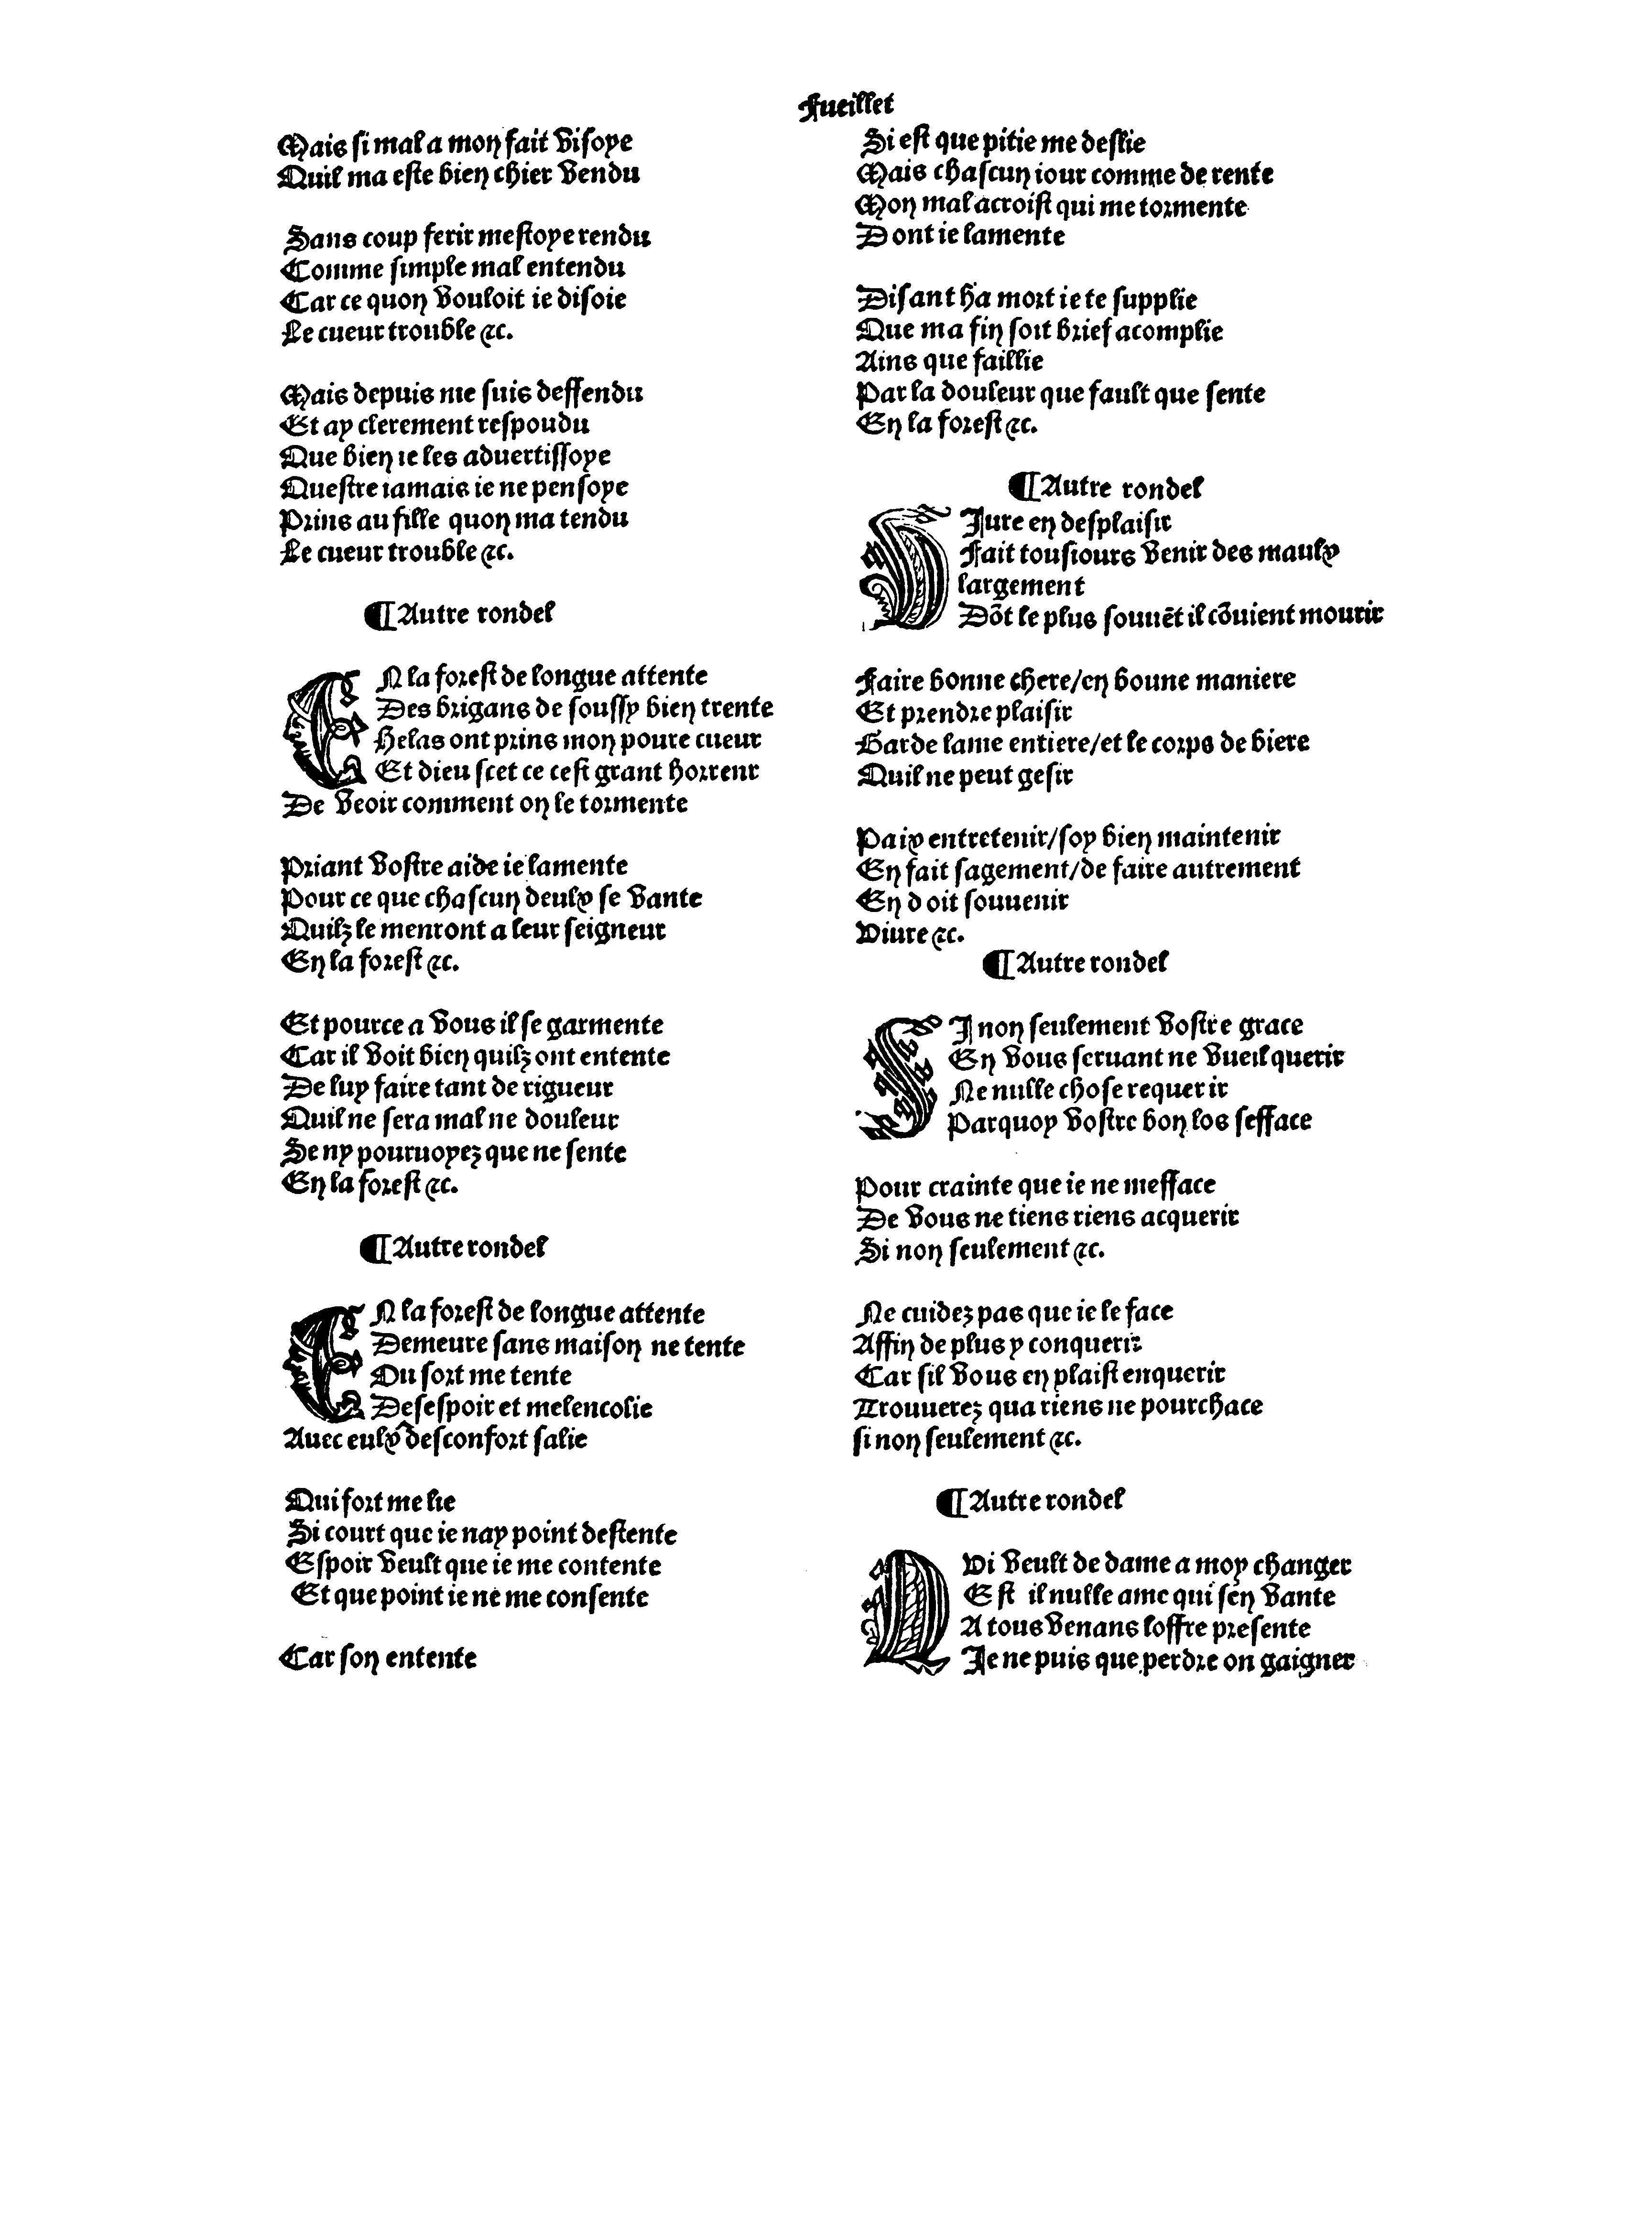 Fueillet
Mais si mal a mon fait visoye
Quil ma este bien chier vendu
Sans coup ferir mestoye rendu
Comme simple mal entendu
Car ce quon vouloit ie disoie
Le cueur trouble &c.
Mais depuis me suis deffendu
Et ay clerement respoudu
Que bien ie les aduertissoye
Questre iamais ie ne pensoye
Prins au fille quon ma tendu
Le cueur trouble &c.
¶Autre rondel
EN la forest de longue attente
Des brigans de soussy bien trente
Helas ont prins mon poure cueur
Et dieu scet ce cest grant horreur
De veoir comment on le tormente
Priant vostre aide ie lamente
Pour ce que chascun deulx se vante
Quilz le menront a leur seigneur
En la forest &c.
Et pource a vous il se garmente
Car il voit bien quilz ont entente
De luy faire tant de rigueur
Quil ne sera mal ne douleur
Se ny pouruoyez que ne sente
En la forest &c.
¶Autre rondel
EN la forest de longue attente
Demeure sans maison ne tente
Ou sort me tente
Desespoir et melencolie
Auec eulx desconfort salie
Qui fort me lie
Si court que ie nay point destente
Espoir veult que ie me contente
Et que point ie ne me consente
Car son entente
Si est que pitie me deslie
Mais chascun iour comme de rente
Mon mal acroist qui me tormente
Dont ie lamente
Disant ha mort ie te supplie
Que ma fin soit brief acomplie
Ains que faillie
Par la douleur que fault que sente
En la forest &c.
¶Autre rondel
VIure en desplaisir
Fait tousiours venir des maulx
largement
Dõt le plus souuẽt il cõuient mourir
Faire bonne chere/en boune maniere
Et prendre plaisir
Garde lame entiere/et le corps de biere
Quil ne peut gesir
Paix entretenir/soy bien maintenir
En fait sagement/de faire autrement
En doit souuenir
Viure &c.
¶Autre rondel
SI non seulement vostre grace
En vous seruant ne vueil querir
Ne nulle chose requerir
Parquoy vostre bon los sefface
Pour crainte que ie ne mefface
De vous ne tiens riens acquerir
Si non seulement &c.
Ne cuidez pas que ie le face
Affin de plus y conquerir
Car sil vous en plaist enquerir
Trouuerez qua riens ne pourchace
si non seulement &c.
¶Autre rondel
QVi veult de dame a moy changer
Est il nulle ame qui sen vante
A tous venans loffre presente
Ie ne puis que perdre on gaigner